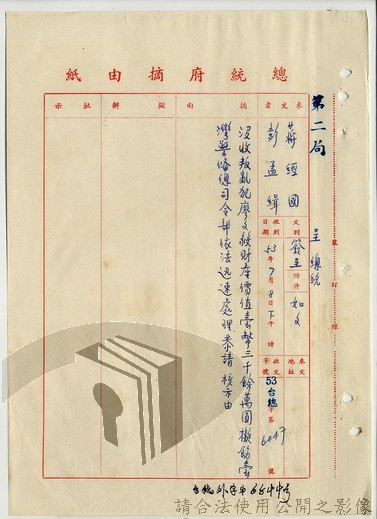 總統府摘由紙
第二局
呈 總統
裝訂線
來文者
蔣經國
彭孟緝
文別
簽呈
附件
如文
來文地址
收到日期
53年7月8日下午 時
收文字號
53台總字第6047號
摘由
沒收叛亂犯廖文毅財產價值臺幣三千餘萬圓擬飭臺
灣警備總司令部依法迅速處理恭請 核示由
擬辦
批示
請合法使用公開之影像